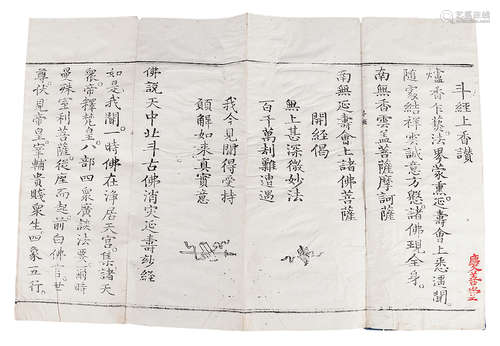 斗經上香讚
爐香乍爇。法界蒙熏。延壽會上悉遙聞。
隨處結祥雲。誠意方慇。諸佛現全身。
南無香雲盖菩薩摩訶薩
南無延壽會上諸佛菩薩
開經偈
無上甚深微妙法
百千萬刼難遭遇
我今見聞得受持
願解如來真實意
佛說天中北斗古佛消灾延壽玅經
如是我聞。一時佛在淨居天宮。集諸天
衆。帝釋梵皇。八部四衆。廣談法要。爾時
曼殊室利菩薩。從座而起。前白佛言。世
尊。伏見帝皇。宰輔貴賤衆生。四象五行。